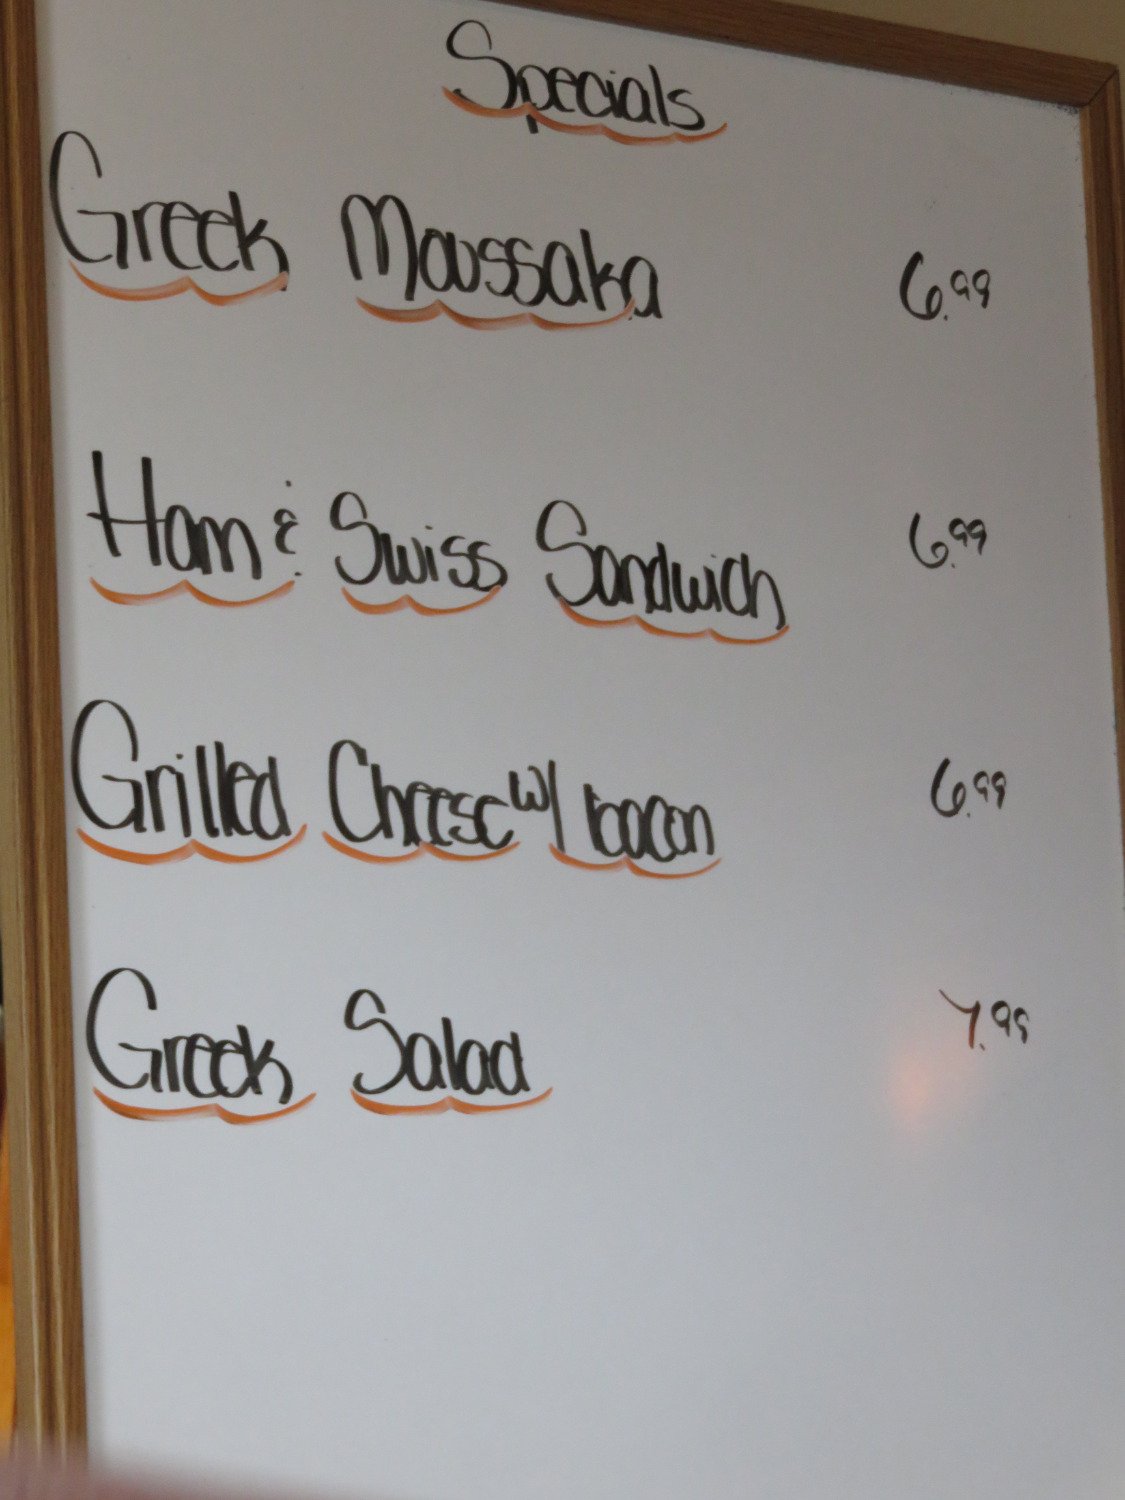 Specials
Greek Moussaka 6.99
Ham & Swiss Sandwich 6.99
Grilled Cheese w/ bacon 6.99
Greek Salad 7.99